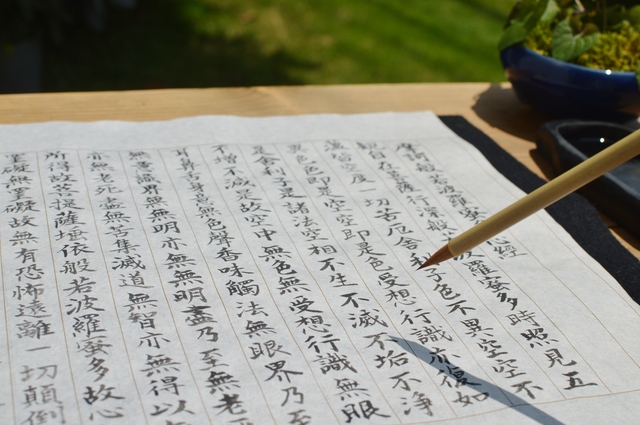 摩訶般若波羅蜜心經
觀自在菩薩行深般波羅蜜多時照見五
蘊皆空度一切苦厄舍利子色不異空空不
異色色即是空空即是色受想行識亦復如
是舍利子是諸法空相不生不滅不垢不淨
不增不減是故空中無色無受想行識無眼
耳鼻舌身意無色聲香味觸法無眼界乃至
無意識界無無明亦無無明盡乃至無老
亦無老死盡無苦集滅道無智亦無得以
所得故菩提薩埵依般若波羅蜜多故心
罣礙無罣礙故無有恐怖遠離一切顛倒